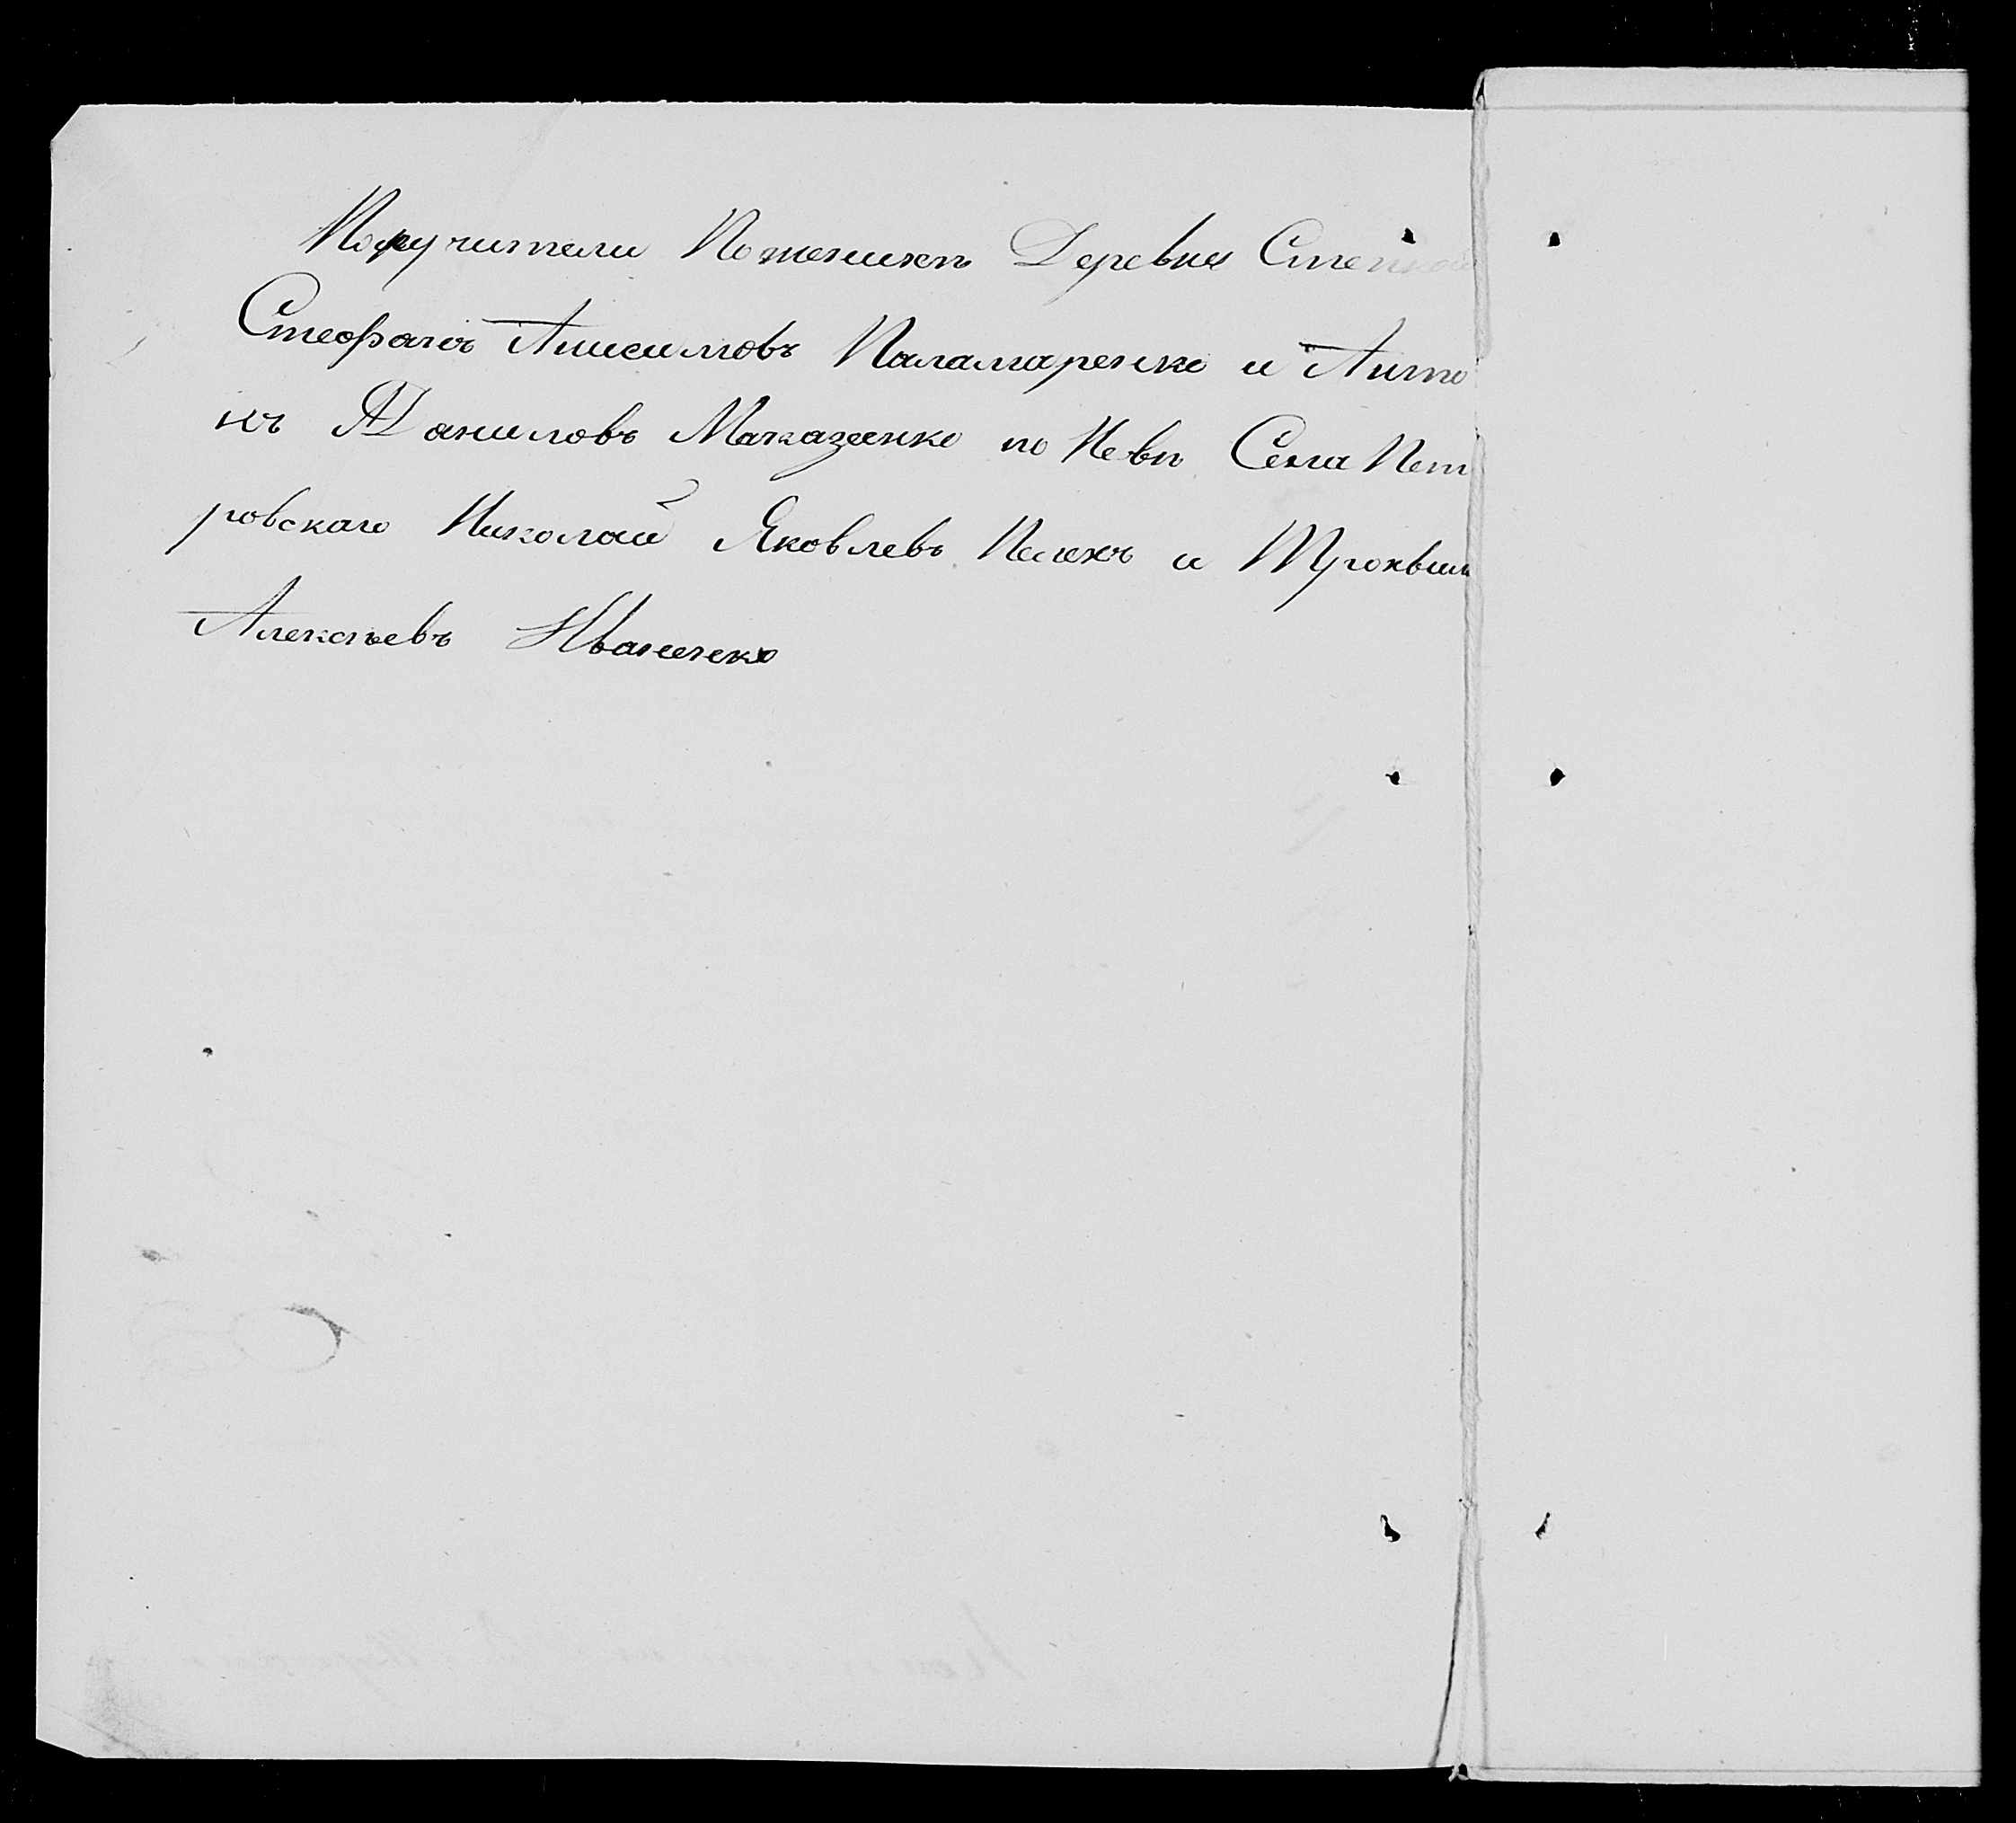 Поручители По женихѣ Деревни Степной
Стеофанъ Анисимовъ Паламаренко и Анто
нъ Даниловъ Маказенко по Невѣ Села Пет
ровскаго Николай Яковлевъ Пелехъ и Трохвим
Алексѣевъ Иваненко